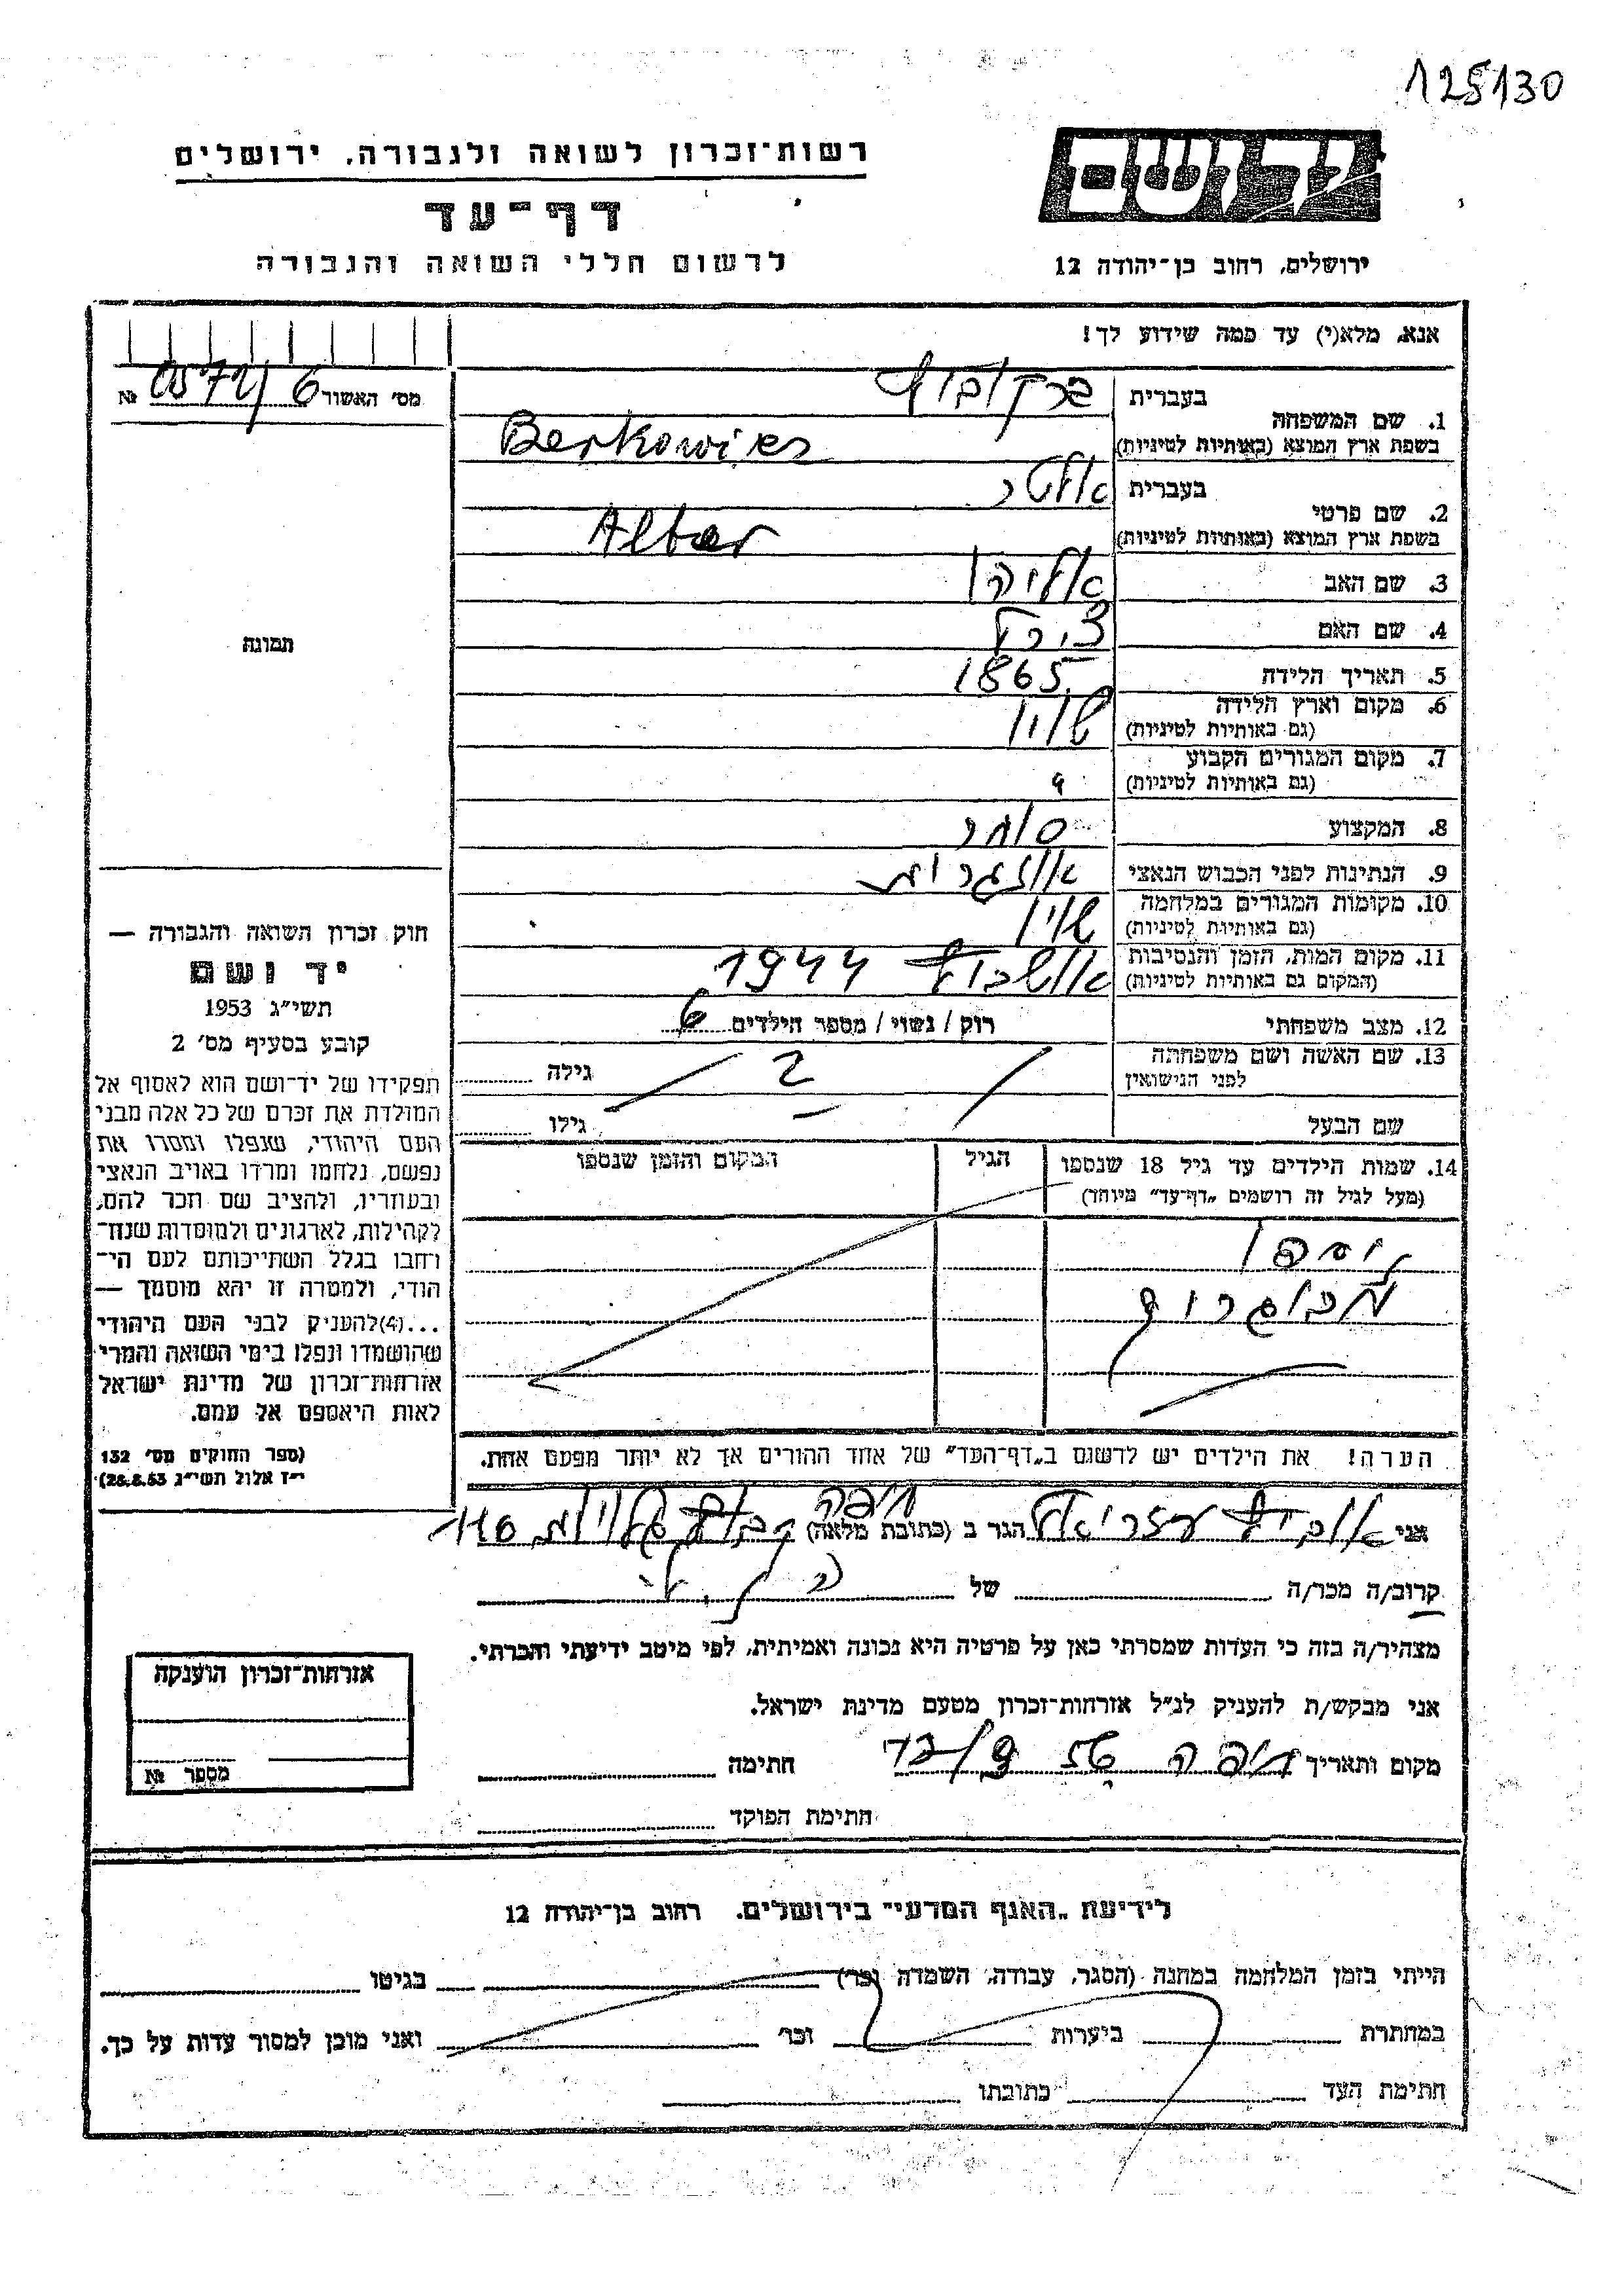 125130
יד ושם
רשות־זכרון לשואה ולגבורה, ירושלים
דף־עד
לרשום חללי השואה והגבורה
ירושלים, רחוב בן־יהודה 12
אנא, מלא(י) עד כמה שידוע לך!
מס׳ האשור 0572/6 №
תמונה
חוק זכרון השואה והגבורה —
יד ושם
תשי״ג 1953
קובע בסעיף מס׳ 2
תפקידו של יד־ושם הוא לאסוף אל
המולדת את זכרם של כל אלה מבני
העם היהודי, שנפלו ומסרו את
נפשם, נלחמו ומרדו באויב הנאצי
ובעוזריו, ולהציב שם וזכר להם,
לקהילות, לארגונים ולמוסדות שנח־
רחבו בגלל השתייכותם לעם הי־
הודי, ולמטרה זו יהא מוסמך —
...(4)להעניק לבני העם היהודי
שהושמדו ונפלו בימי השואה והמרי
אזרחות־זכרון של מדינת ישראל
לאות היאספם אל עמם.
(ספר החוקים מס׳ 132
י״ז אלול תשי״ג 28.8.53)
1. שם המשפחה
בעברית ברקוביץ
בשפת ארץ המוצא (באותיות לטיניות) Berkowics
2. שם פרטי
בעברית אלטר
בשפת ארץ המוצא (באותיות לטיניות) Alter
3. שם האב אליהו
4. שם האם צירל
5. תאריך הלידה 1865
6. מקום וארץ הלידה
(גם באותיות לטיניות)
7. מקום המגורים הקבוע
(גם באותיות לטיניות)
8. המקצוע סוחר
9. הנתינות לפני הכבוש הנאצי
10. מקומות המגורים במלחמה
(גם באותיות לטיניות)
11. מקום המות, הזמן והנסיבות אושביץ 1944
(המקום גם באותיות לטיניות)
12. מצב משפחתי רוק / נשוי / מספר הילדים 6
13. שם האשה ושם משפחתה
לפני הנישואין גילה
שם הבעל גילו
14. שמות הילדים עד גיל 18 שנספו הגיל המקום והזמן שנספו
(מעל לגיל זה רושמים „דף־עד״ מיוחד)
נספו
מבוגרים
הערה! את הילדים יש לרשום ב„דף־העד״ של אחד ההורים אך לא יותר מפעם אחת.
אני עזריאל הגר ב (כתובת מלאה) חיפה
קרוב/ה מכר/ה של
מצהיר/ה בזה כי העדות שמסרתי כאן על פרטיה היא נכונה ואמיתית, לפי מיטב ידיעתי והכרתי.
אני מבקש/ת להעניק לנ״ל אזרחות־זכרון מטעם מדינת ישראל.
מקום ותאריך חיפה חתימה
חתימת הפוקד
אזרחות־זכרון הוענקה
מספר №
לידיעת „האגף המדעי״ בירושלים, רחוב בן־יהודה 12
הייתי בזמן המלחמה במחנה (הסגר, עבודה, השמדה וכו׳) בגיטו
במחתרת ביערות וכו׳ ואני מוכן למסור עדות על כך.
חתימת העד כתובתו